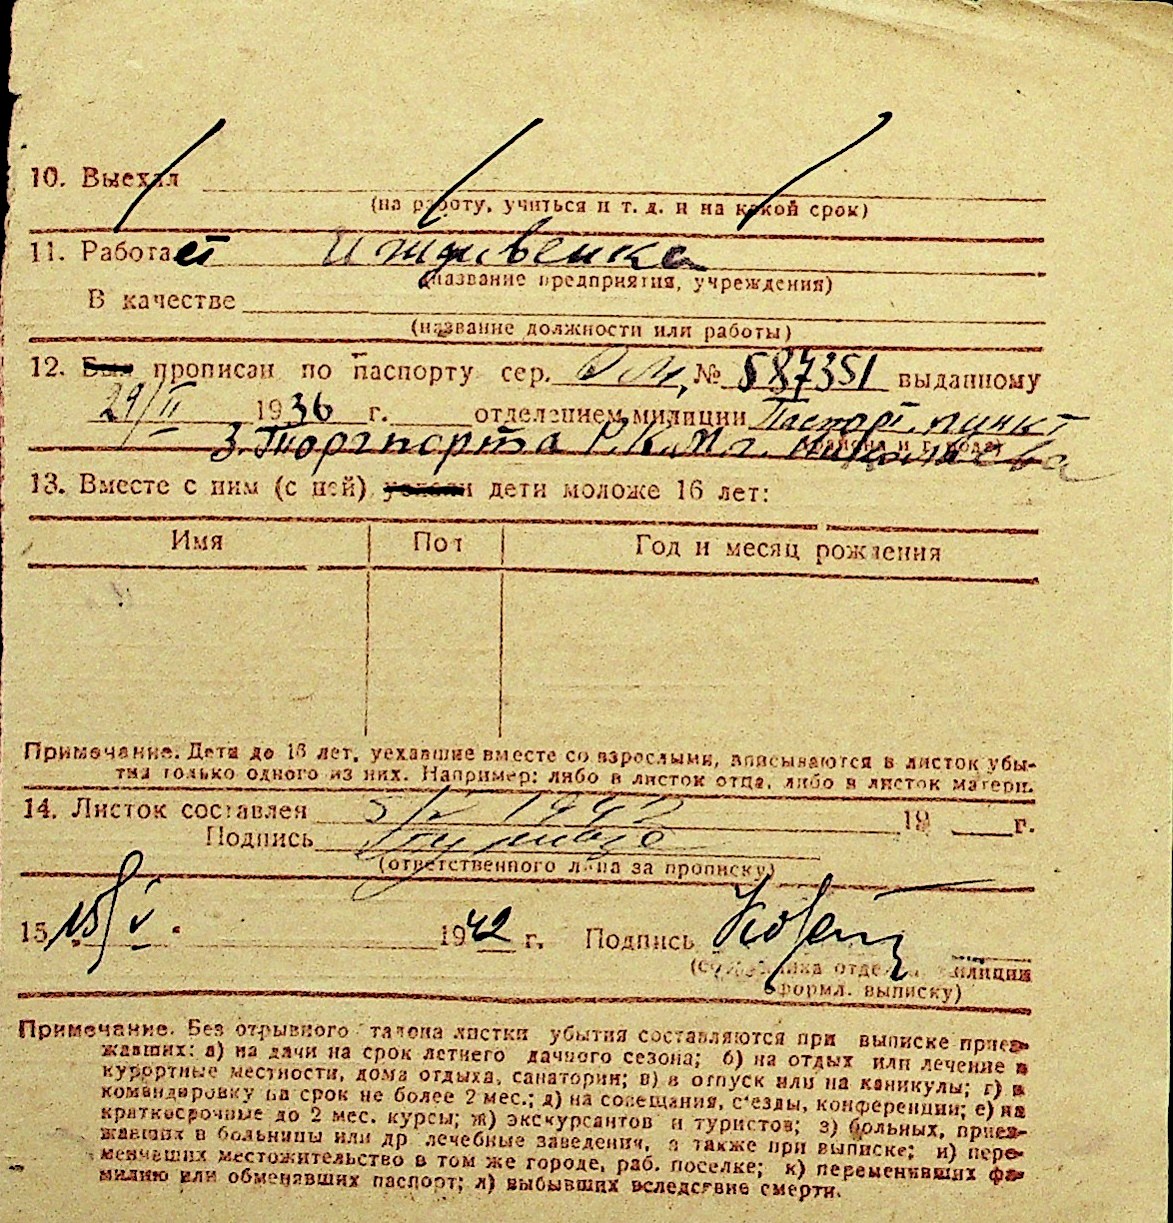 10. Выехал
(на работу, учиться и т. д. и на какой срок)
11. Работает иждивенка
(название предприятия, учреждения)
В качестве
(название должности или работы)
12. Был прописан по паспорту сер. № 587351 выданному
29/II 1936 г. отделением милиции Паспорт. пункт
(района и города)
3. Торгпорта Р.К.М. г. Николаева
13. Вместе с ним (с ней) уехали дети моложе 16 лет:
Имя Пол Год и месяц рождения
Примечание. Дети до 16 лет, уехавшие вместе со взрослыми, вписываются в листок убы-
тия только одного из них. Например: либо в листок отца, либо в листок матери.
14. Листок составлен 5/V 1942 19 г.
Подпись
(ответственного лица за прописку)
15. 15/V 1942 г. Подпись
(сотрудника отдел. милиции
оформл. выписку)
Примечание. Без отрывного талона листки убытия составляются при выписке приез-
жавших: а) на дачи на срок летнего дачного сезона; б) на отдых или лечение в
курортные местности, дома отдыха, санатории; в) в отпуск или на каникулы; г) в
командировку на срок не более 2 мес.; д) на совещания, с'езды, конференции; е) на
краткосрочные до 2 мес. курсы; ж) экскурсантов и туристов; з) больных, приез-
жавших в больницы или др лечебные заведения, а также при выписке; и) пере-
менивших местожительство в том же городе, раб. поселке; к) переменивших фа-
милию или обменявших паспорт; л) выбывших вследствие смерти.